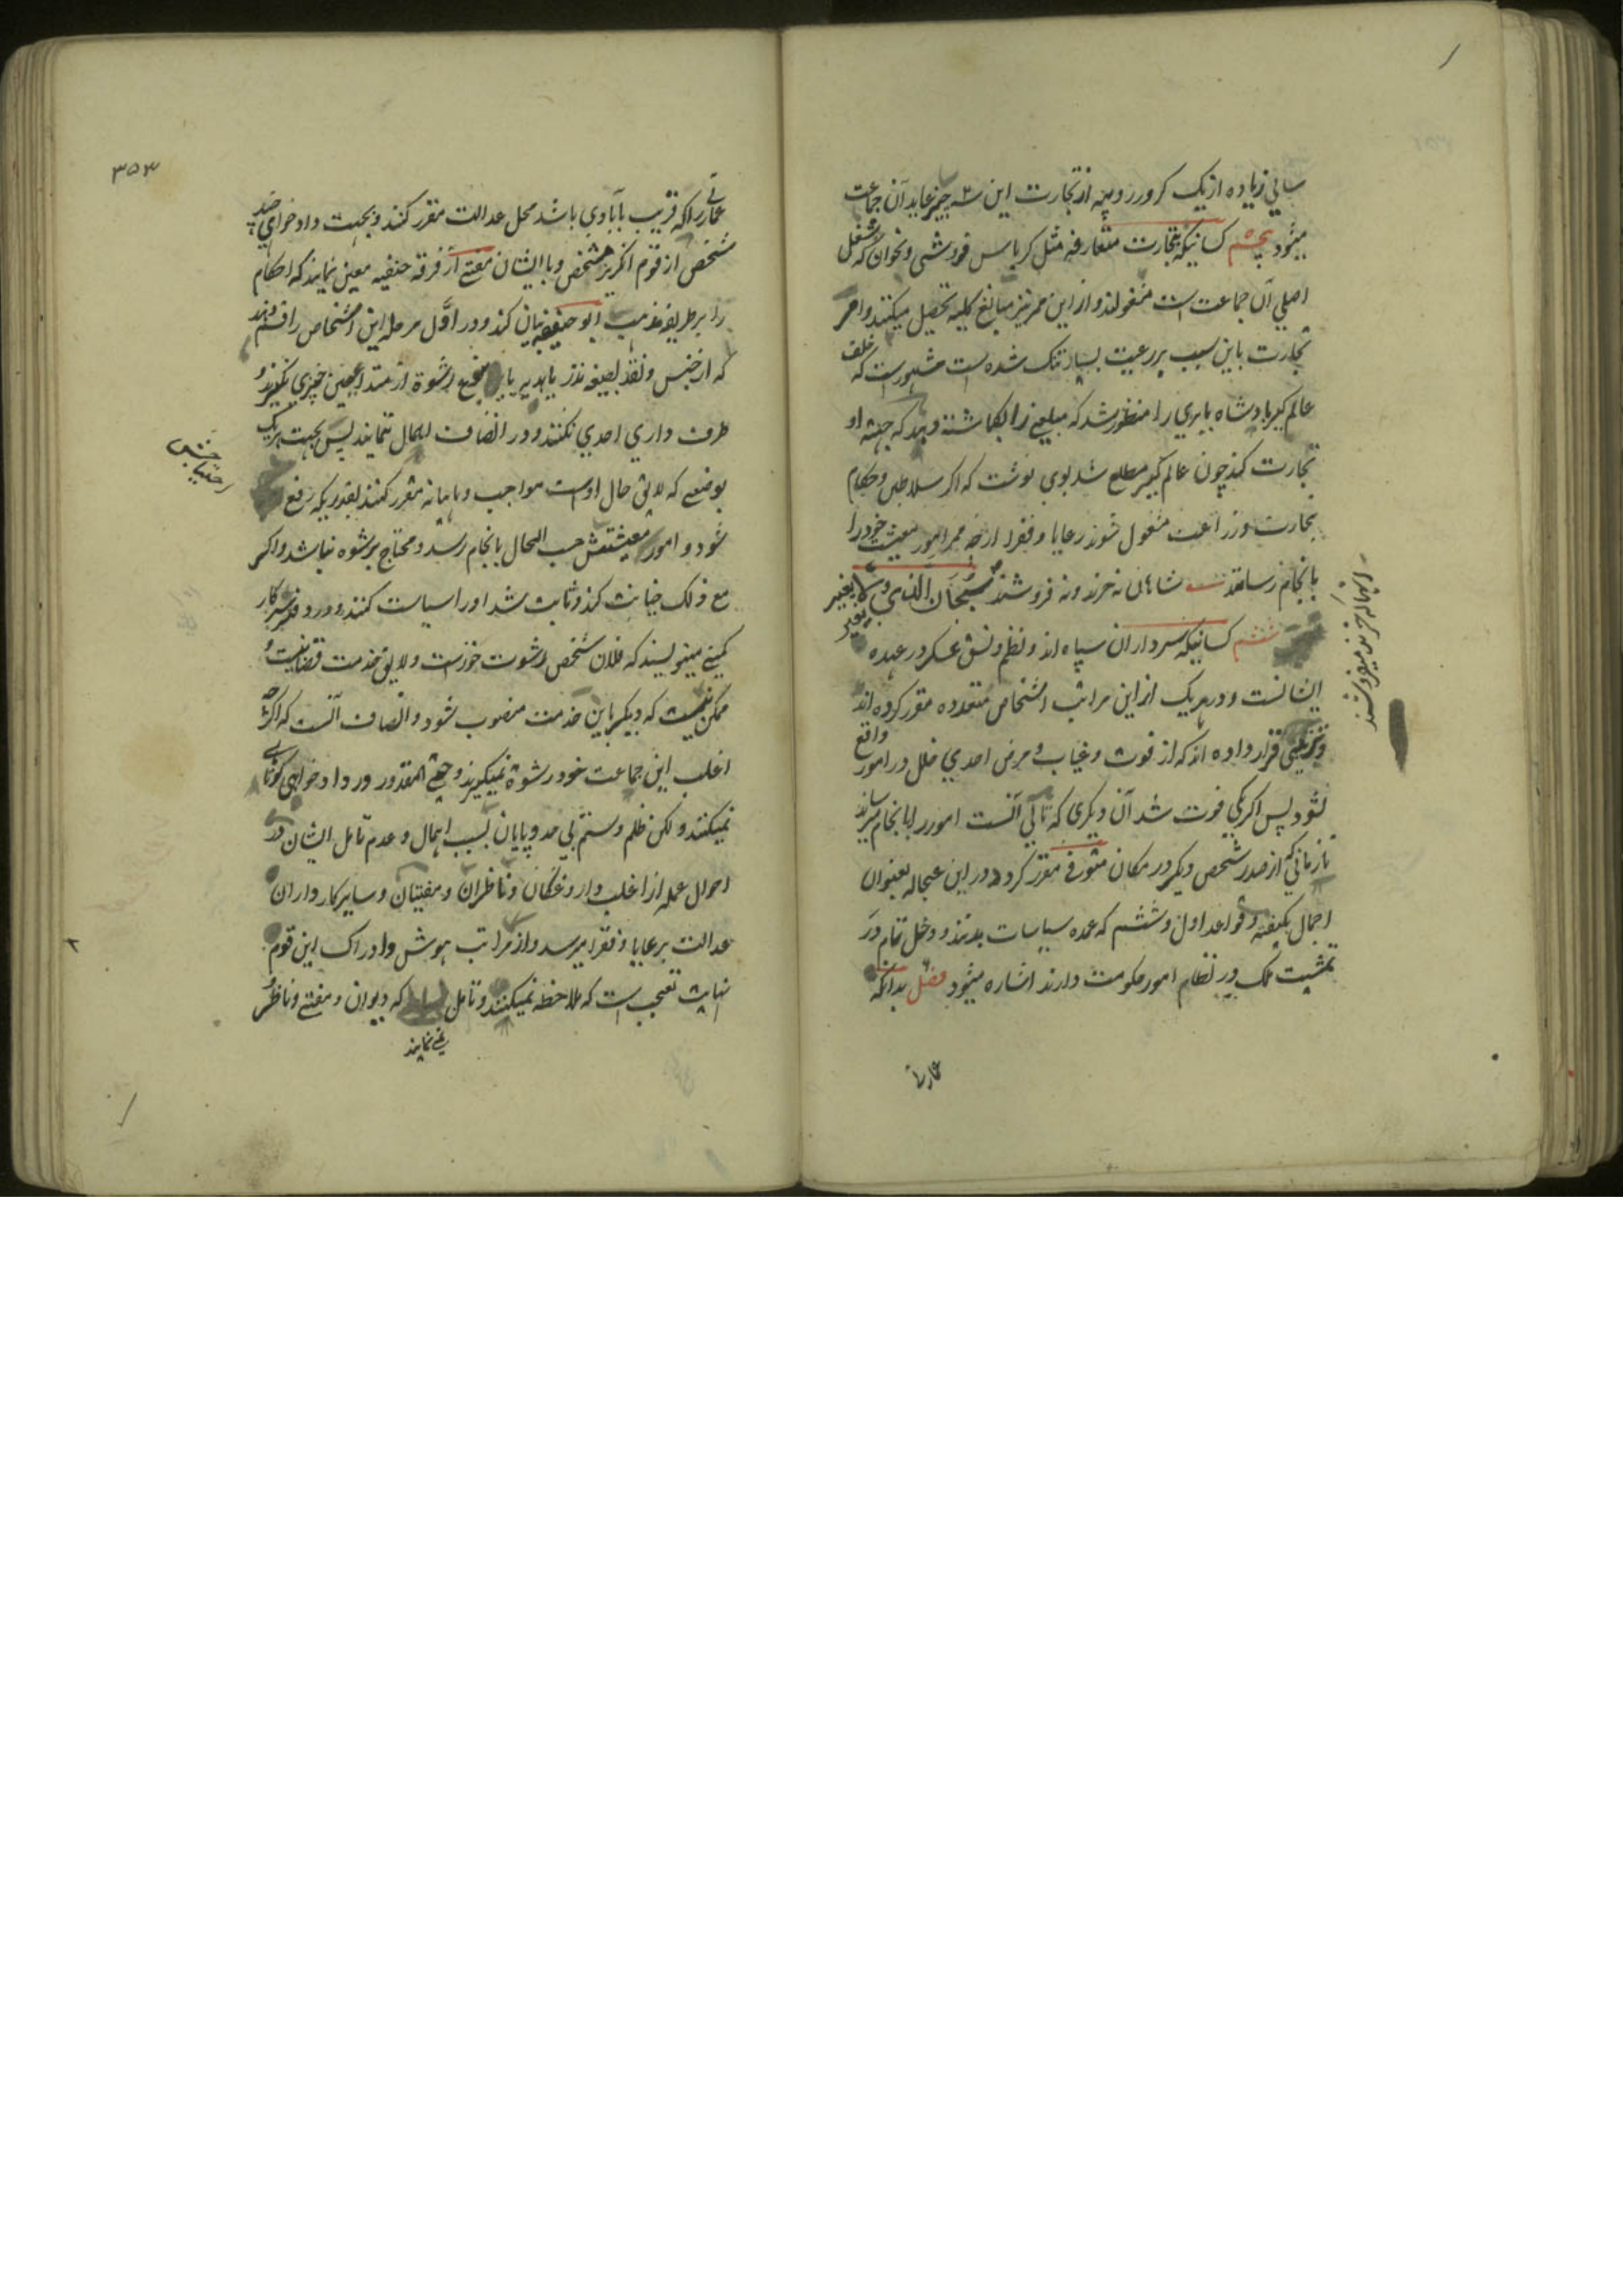 سالي زياده از يک کرور روپيه از تجارت اين سه چيز عايد آن جماعت
ميشود پنجم کسانيکه بتجارت متعارفه مثل کرباس فروشي و نحو آن که شغل
اصلي آن جماعت است مشغولند و از اين ممر نيز مبالغ کليه تحصيل ميکنند و امر
تجارت باين سبب بر رعيت بسيار تنک شده است مشهور است که خلف
عالم کير پادشاه بابري را منظور شد که مبلغي زر بکماشته دهد که جهته او
تجارت کند چون عالم کير مطلع شد بوي نوشت که اکر سلاطين و حکام
بتجارت و زراعت مشغول شوند رعايا و فقرا از چه ممر امور معيشت خود را
بانجام رسانند شاهان نه خرند و نه فروشند سبحان الذي لا يتغير
ششم کسانيکه سرداران سپاه اند و نظم و نسق عسکر در عهده
ايشانست و در هر يک از اين مراتب اشخاص متعدده مقرر کرده اند
و ترتيبي قرار داده اند که از فوت و غياب و مرض احدي خلل در امور واقع
نشود پس اکر يکي فوت شد آن ديکري که تالي آنست امور را بانجام ميرساند
تا زماني که از صدر شخص ديکر در مکان متوفي مقرر کردد و در اين عجاله بعنوان
اجمال بکيفيه و قواعد اول و ششم که عمده سياسات بلدند و دخل تمام در
تمشيت ملک و نظام امور حکومت دارند اشاره ميشود فصل بدانکه
عمارتي
۳۵۳
عمارتي را که قريب بآبادي باشد محل عدالت مقرر کنند و بجهت داد خواهي چند
شخص از قوم انکريز مشخص و با ايشان مفتي از فرقه حنفيه معين نمايند که احکام
را بر طريقه مذهب ابو حنيفه بيان کند و در اول مرحله اين اشخاص را قسم دهند
که از جنس و نقد بصيغه نذر يا هديه يا رشوة از متداعيين چيزي نکيرند و
طرف داري احدي نکنند و در انصاف اهمال ننمايند پس بجهت هر يک
بوضعي که لايق حال اوست مواجب و ماهيانه مقرر کنند بقدريکه رفع
احتياجش
شود و امور معيشتش حسب الحال بانجام رسد و محتاج برشوه نباشد و اکر
مع ذلک خيانت کند و ثابت شد او را سياست کنند و در دفتر سرکار
کمپني مينويسند که فلان شخص رشوت خور است و لايق خدمت قضا نيست و
ممکن نيست که ديکر باين خدمت منصوب شود و انصاف آنست که اکرچه
اغلب اين جماعت خود رشوة نميکيرند و حتي المقدور در داد خواهي کوتاهي
نميکنند ولکن ظلم و ستم بي حد و پايان بسبب اهمال و عدم تامل ايشان در
احوال عمله از اغلب داروغکان و ناظران و مفتيان و ساير کار داران
عدالت بر عايا و فقرا ميرسد و از مراتب هوش و ادراک اين قوم
نهايت تعجب است که ملاحظه نميکنند و تامل نمي نمايند که ديوان و مفتي و ناظر